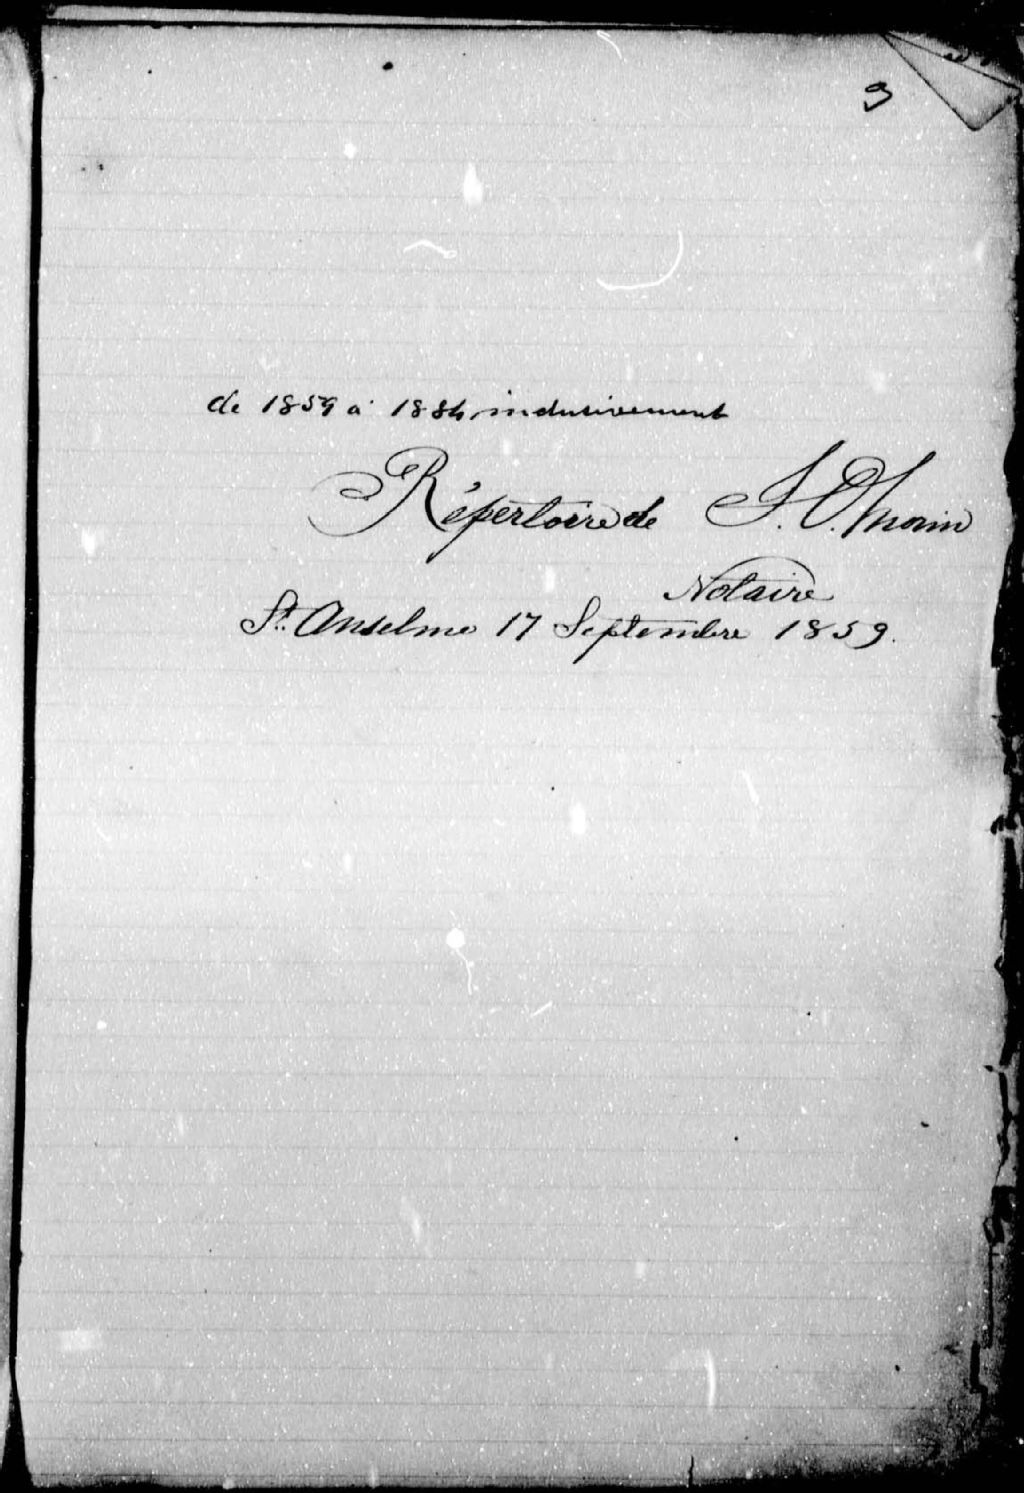 9
de 1859 à 1884 inclusivement
Répertoire de J. O. Morin
Notaire
St. Anselme 17 Septembre 1859.